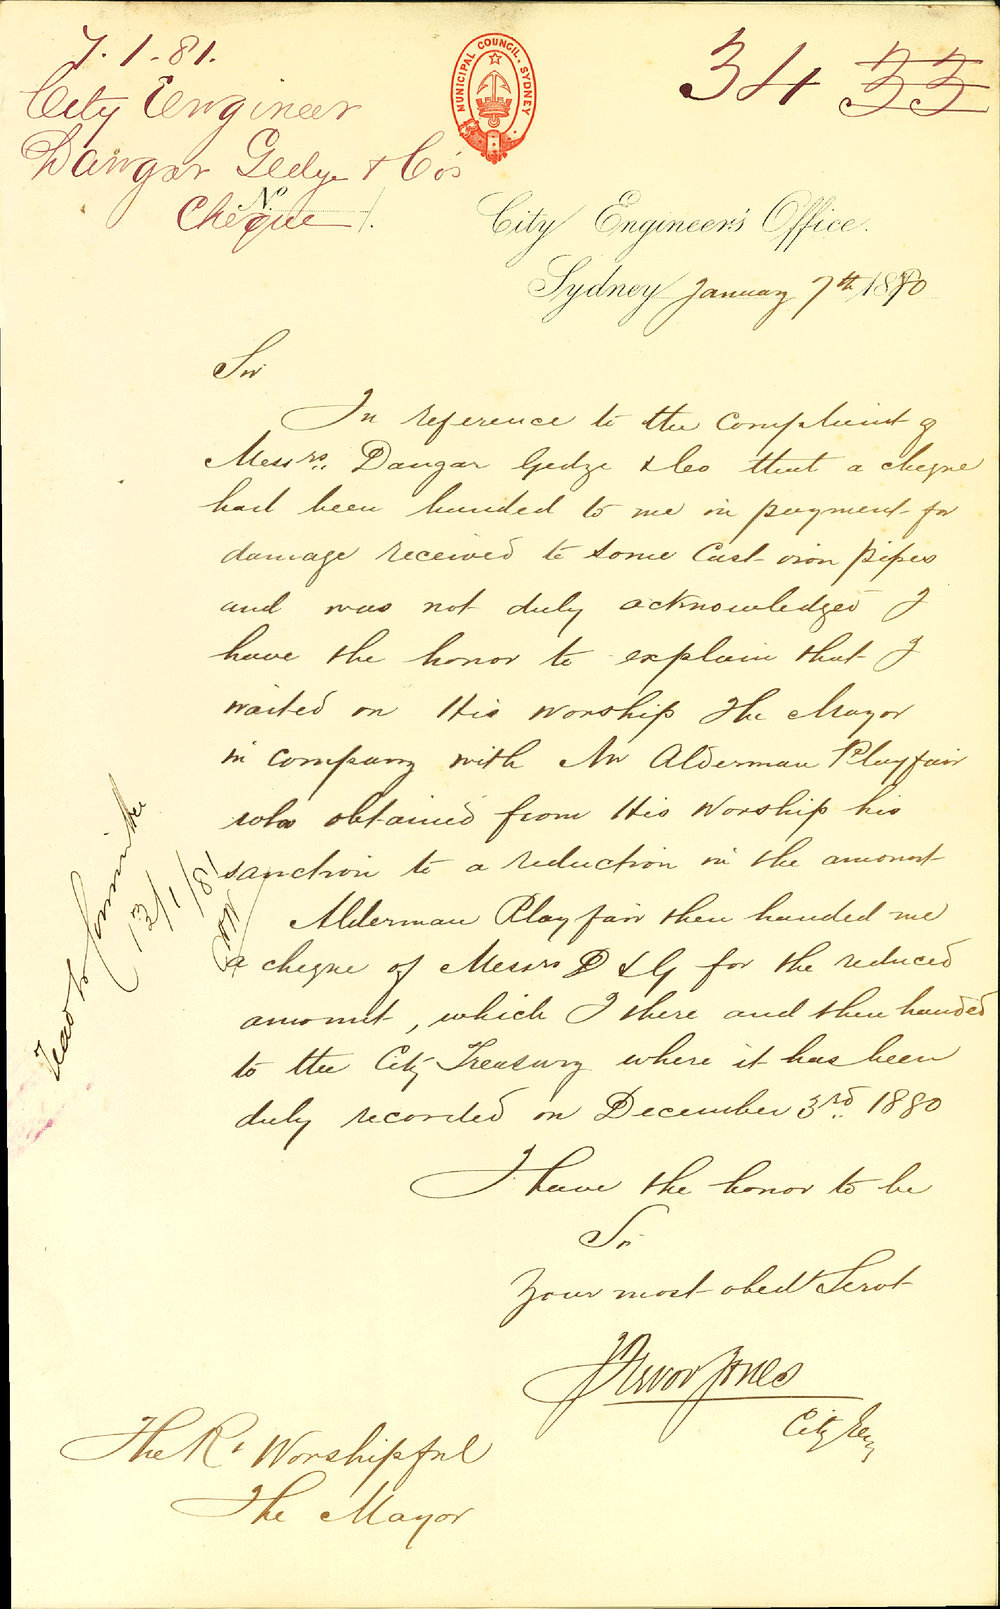 7.1.81.
City Engineer
Dangar Gedye & Co's
Cheque
No 1.
MUNICIPAL COUNCIL. SYDNEY
34 33
City Engineer's Office.
Sydney January 7th 1880
Sir
In reference to the complaint of
Messrs. Dangar Gedge & Co that a cheque
had been handed to me in payment for
damage received to some Cast iron pipes
and was not duly acknowledged I
have the honor to explain that I
waited on His Worship The Mayor
in company with Mr Alderman Playfair
who obtained from His Worship his
sanction to a reduction in the amount
Alderman Playfair then handed me
a cheque of Messrs D & G for the reduced
amount, which I there and then handed
to the City Treasury where it has been
duly recorded on December 3rd. 1880
I have the honor to be
Sir
Your most obedt Servt
Trevor Jones
City Eng
The Rt Worshipful
The Mayor
Read to Committee
13/1/81